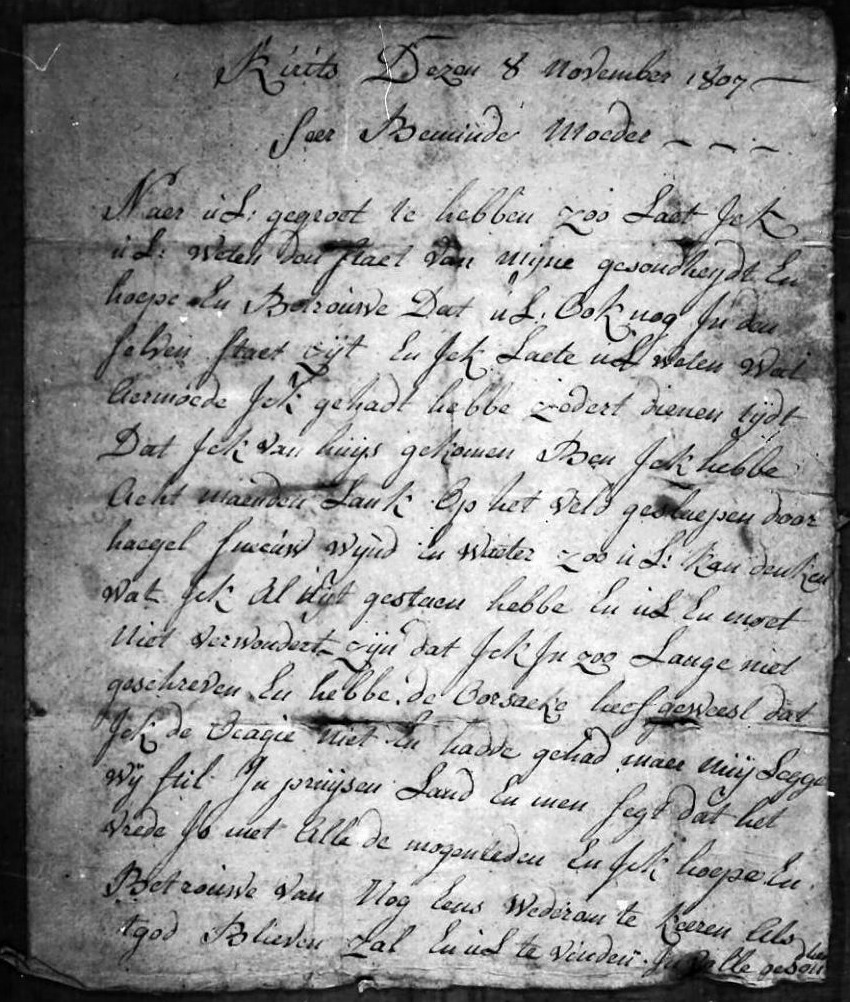 Kirits Dezen 8 November 1807
Seer Beminde Moeder
Naer uL: gegroet te hebben zoo Laet Jck
uL: weten den staet van mijne gesondheydt En
hoepe En Betrouwe Dat uL: Ook nog Jn den
selven staet zijt En Jck Laete uL weten wat
Aermoede Jck gehadt hebbe zedert dienen tijdt
Dat Jck van huijs gekomen Ben Jck hebbe
Acht maenden Lank Op het veld geslaepen door
haegel sneeuw wijnd En waeter zoo uL: kan denken
wat Jck Al uijt gestaen hebbe En uL En moet
Niet verwondert zijn dat Jck Jn zoo Lange niet
geschreven En hebbe de Oorsaeke heef geweest dat
Jck de Ocagie niet En hadde gehad maer nuij Legge
wij stil Jn pruijsen Land En men segt dat het
vrede Js met Alle de mogenteden En Jck hoepe En
Betrouwe van Nog Eens wederom te keeren Als
tgod Blieven zal En uL te vinden Jn volle geson